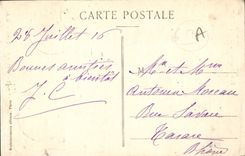 CARTE POSTALE
A
28 Juillet 16
Bonnes amitiés
à bientôt
J. C
Mr et Mme
Antoine Moreau
Rue Savoie
Tarare
Rhône